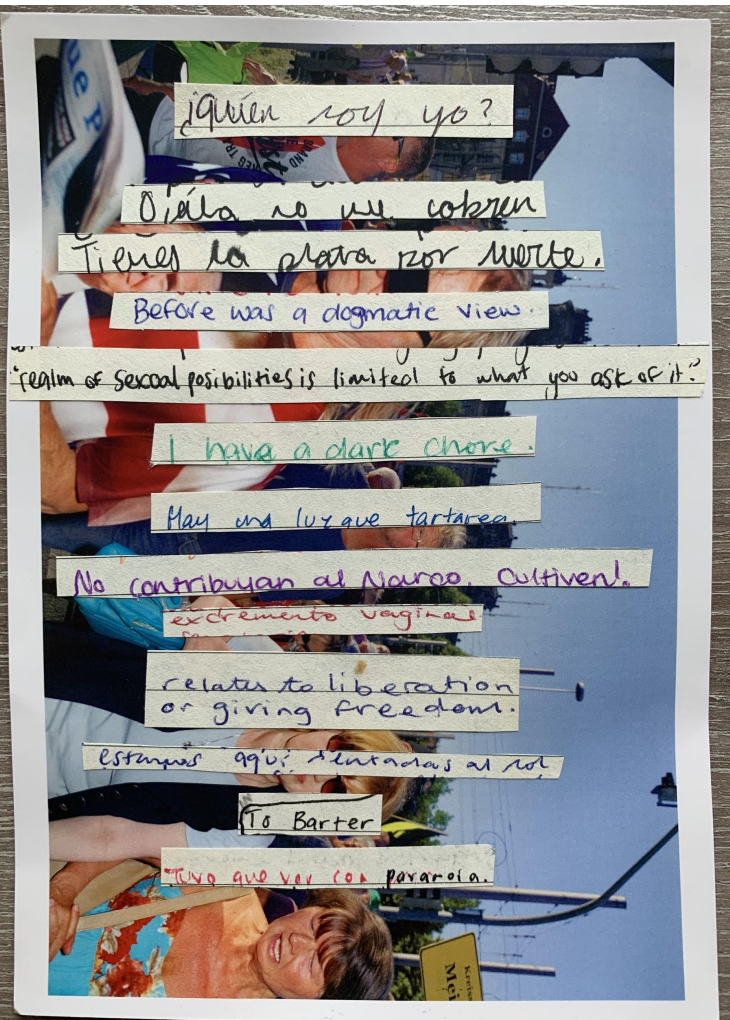 ¿Quién soy yo?
Ojála no me cobren
Tienes la plata por suerte.
Before was a dogmatic view.
"realm of sexoal posibilities is limited to what you ask of it."
I have a dark chore.
Hay una luz que tartarea.
No contribuyan al Narco, Cultiven!.
excremento vaginal
relates to liberation
or giving freedom.
estamos aquí sentadas al sol
To Barter
Tuvo que ver con paranoia.
Kreis
Mei